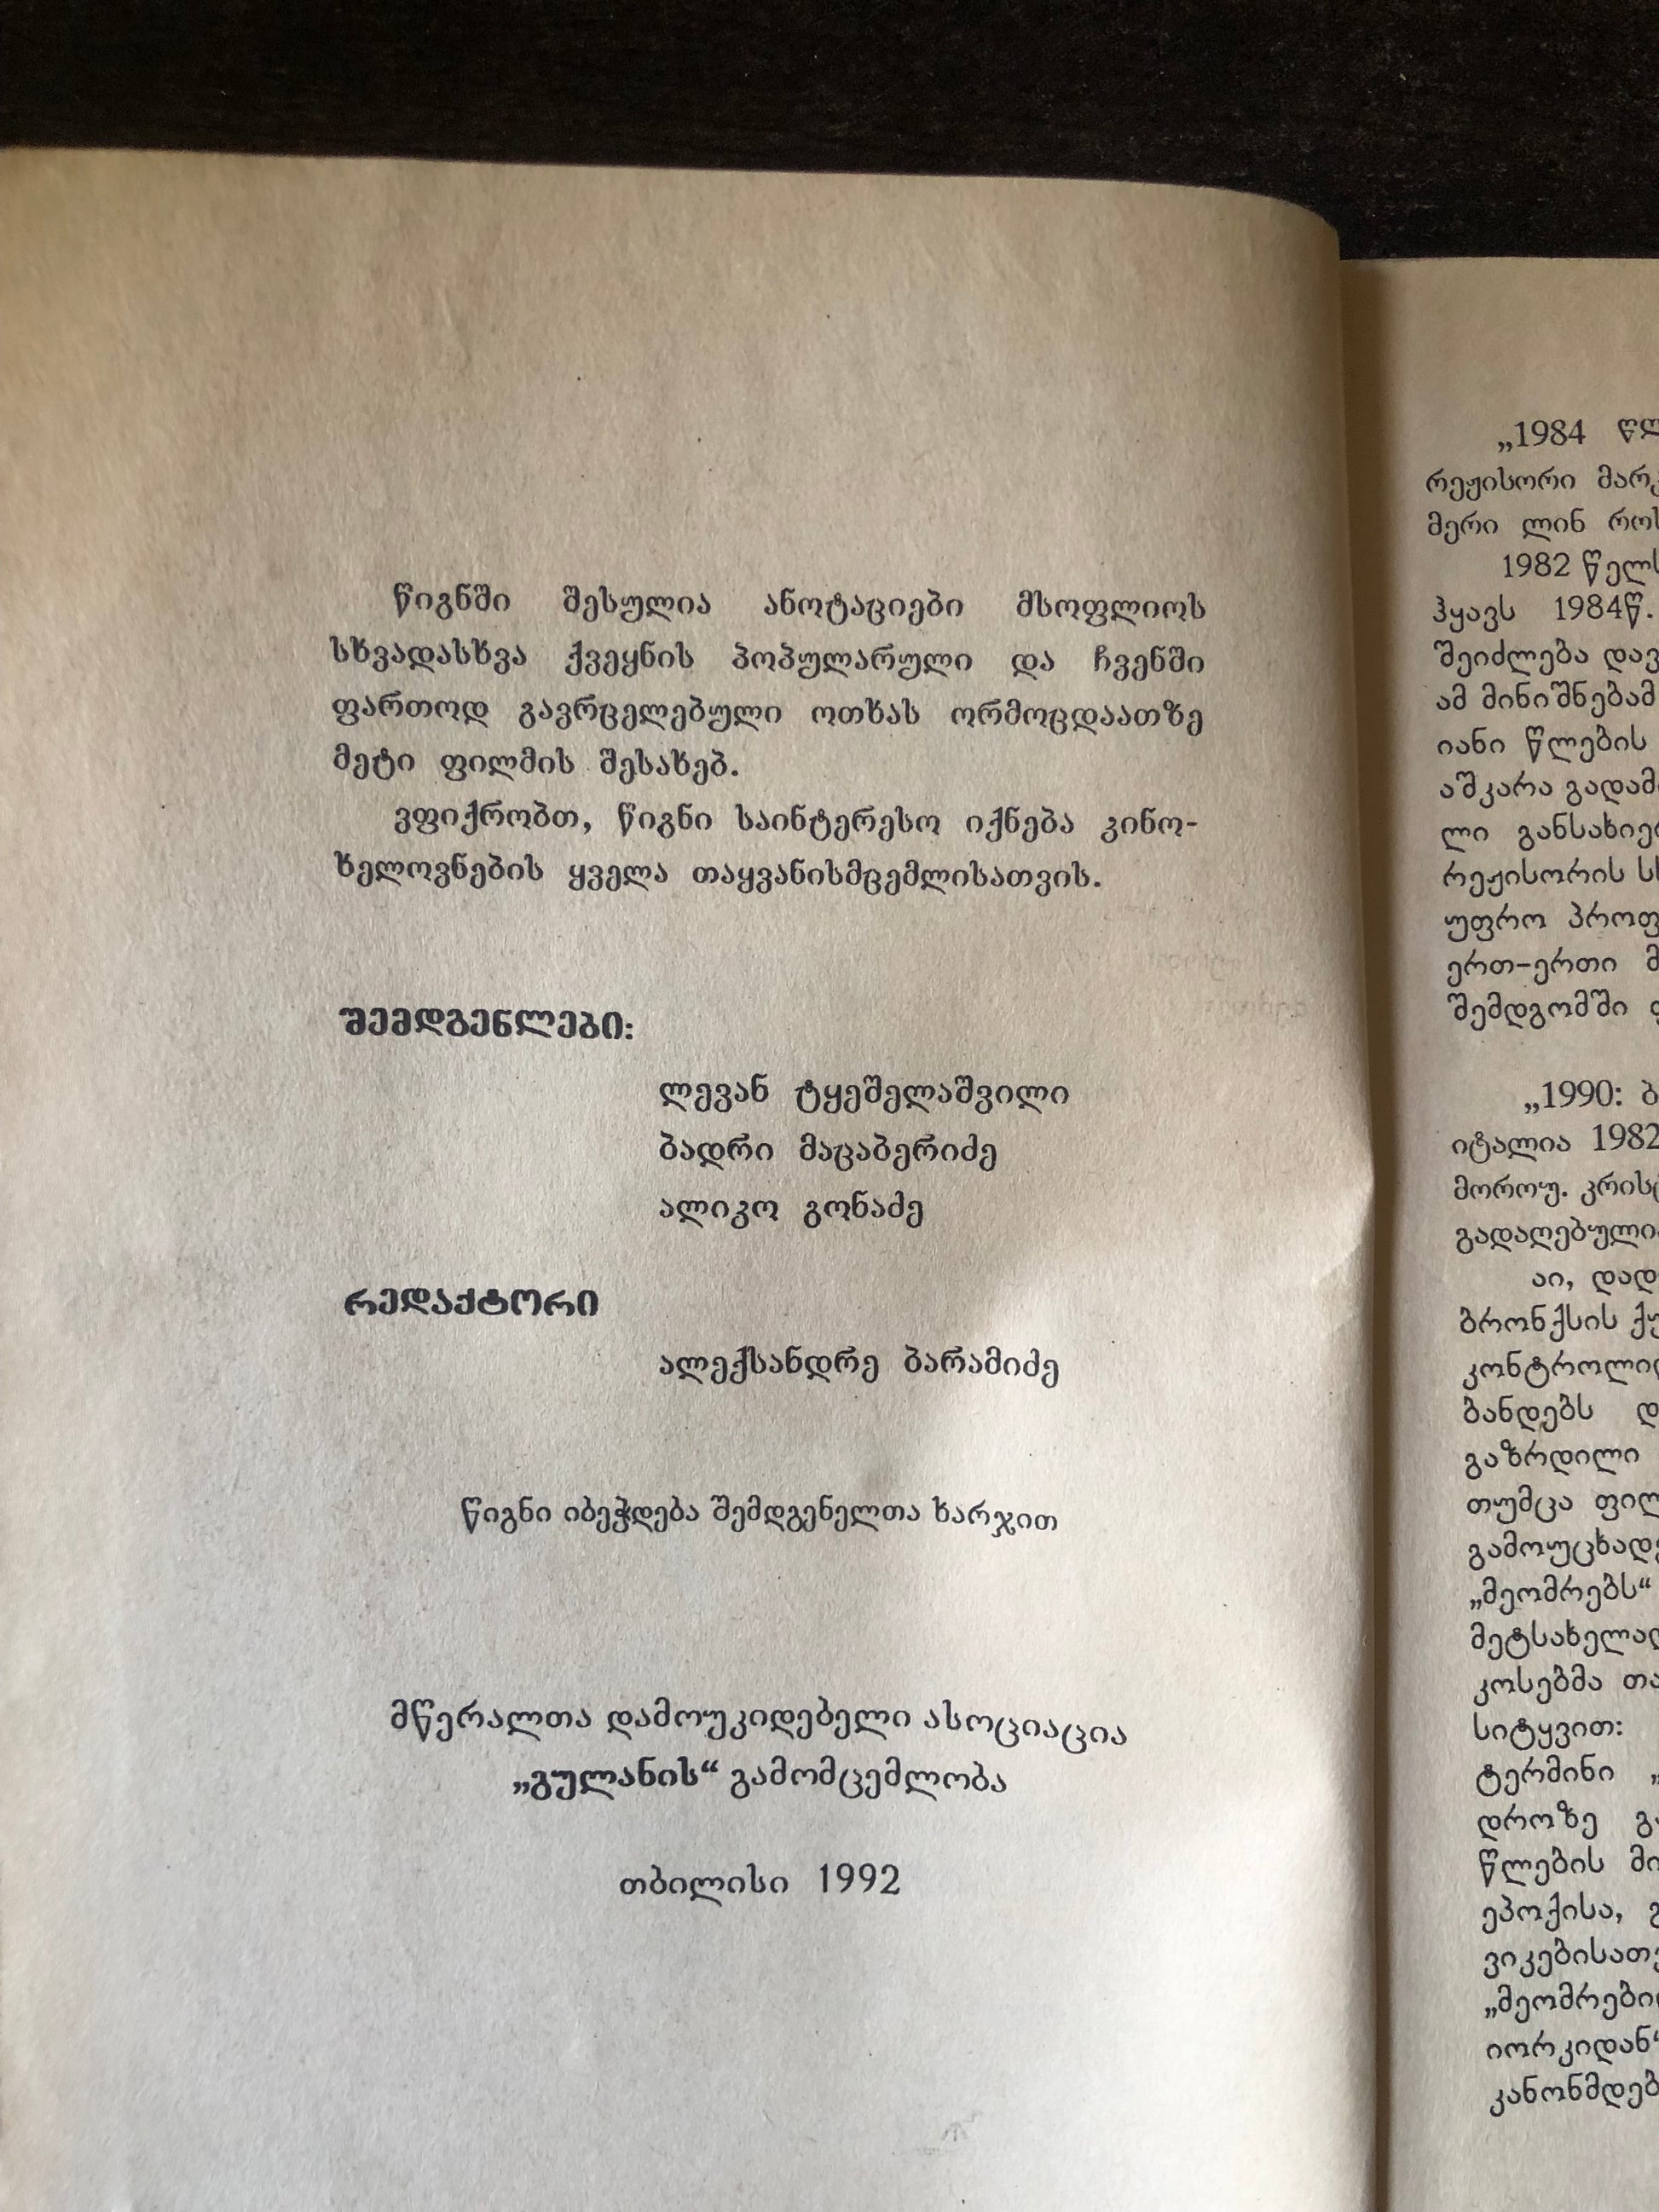 წიგნში შესულია ანოტაციები მსოფლიოს
სხვადასხვა ქვეყნის პოპულარული და ჩვენში
ფართოდ გავრცელებული ოთხას ორმოცდაათზე
მეტი ფილმის შესახებ.
ვფიქრობთ, წიგნი საინტერესო იქნება კინო-
ხელოვნების ყველა თაყვანისმცემლისათვის.
შემდგენლები:
ლევან ტყეშელაშვილი
ბადრი მაცაბერიძე
ალიკო გონაძე
რედაქტორი
ალექსანდრე ბარამიძე
წიგნი იბეჭდება შემდგენელთა ხარჯით
მწერალთა დამოუკიდებელი ასოციაცია
„გულანის“ გამომცემლობა
თბილისი 1992
„1984
რეჟისორი
მერი ლინ
1982
ჰყავს 1984წ.
შეიძლება
ამ მინიშნებამ
იანი წლების
აშკარა
ლი
რეჟისორის
უფრო
ერთ-ერთი
შემდგომში
„1990:
იტალია 1982
მოროუ.
აი,
ბრონქსის
ბანდებს
გაზრდილი
თუმცა
„მეომრებს“
კოსებმა
სიტყვით:
ტერმინი
დროზე
წლების
ეპოქისა,
იორკიდან“